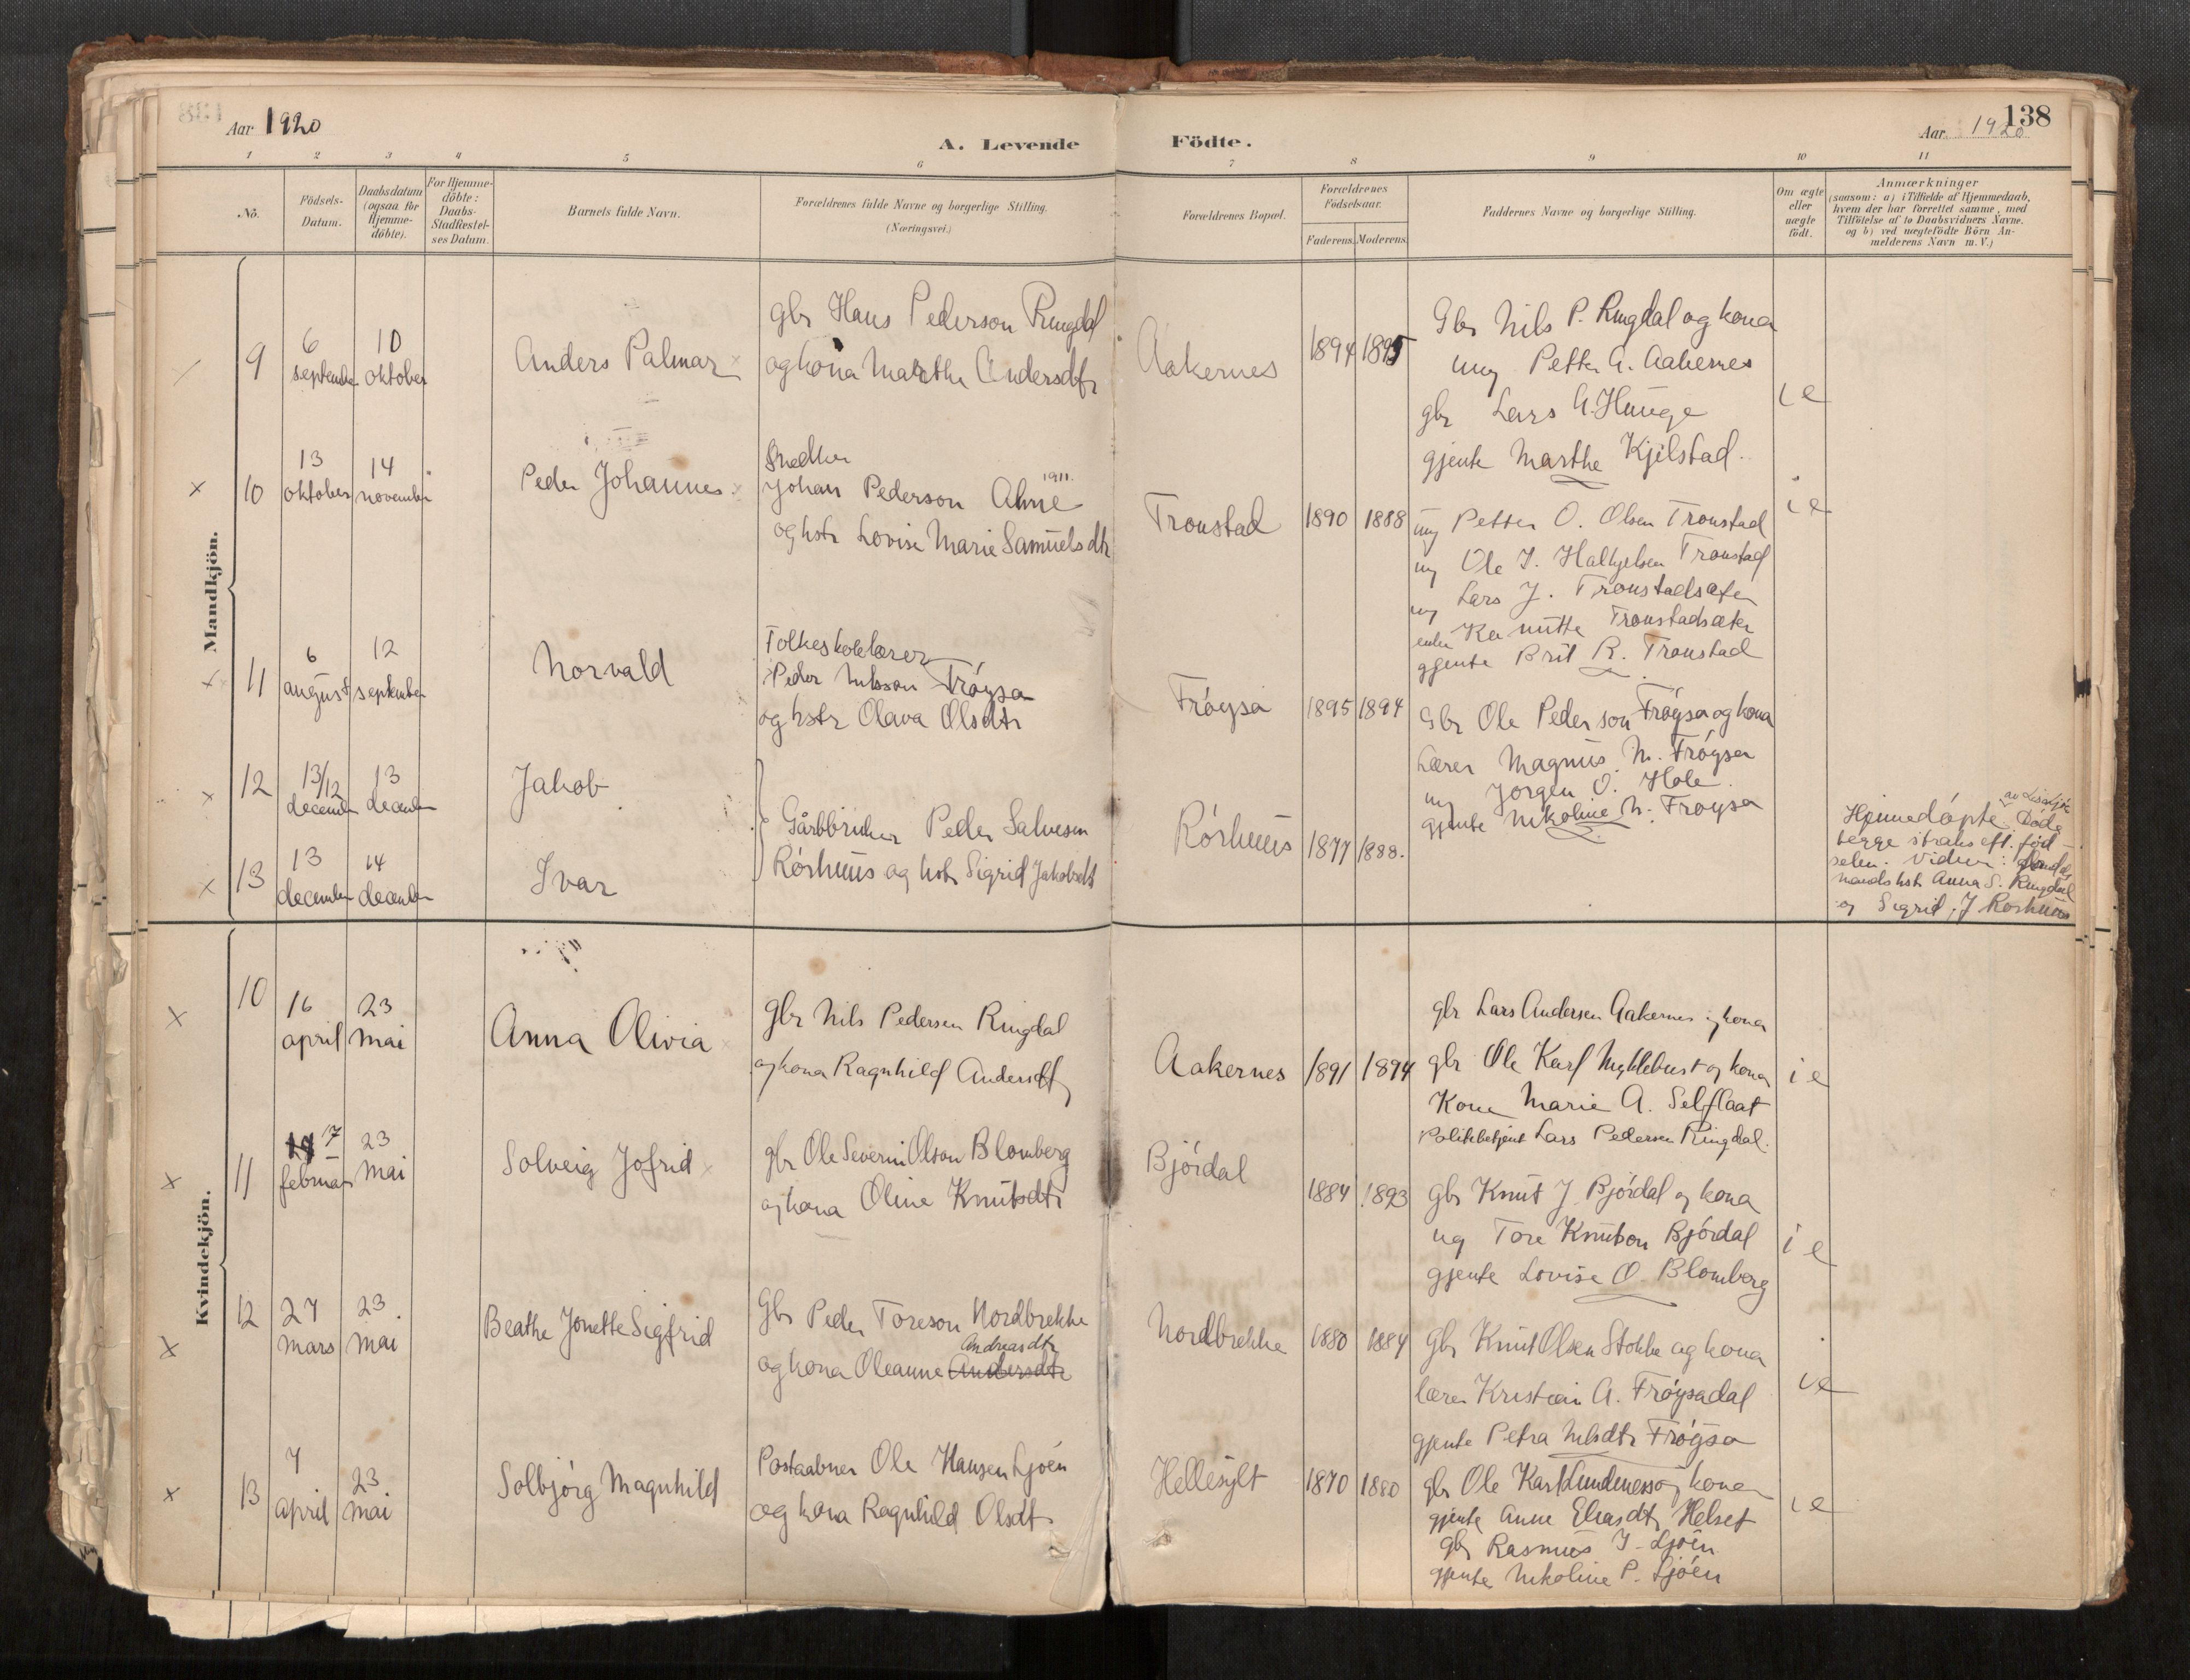 Aar 1920
A. Levende Födte.
Aar 1920
138
1 2 3 4 5 6 7 8 9 10 11
No.
Födsels-Datum.
Daabsdatum (ogsaa for Hjemme-döbte).
For Hjemme-döbte: Daabs-Stadfæstel-ses Datum.
Barnets fulde Navn.
Forældrenes fulde Navne og borgerlige Stilling.
(Næringsvei.)
Forældrenes Bopæl.
Forældrenes Födselsaar.
Faderens. Moderens.
Faddernes Navne og borgerlige Stilling.
Om ægte eller uægte födt.
Anmærkninger
(saasom: a) i Tilfælde af Hjemmedaab,
hvem der har forrettet samme, med
Tilföielse af to Daabsvidners Navne.
og b) ved uægtefödte Börn An-
melderens Navn m. V.)
Mandkjön.
9
6 september
10 oktober
Anders Palmar
gbr Hans Pederson Ringdal
og kona Marthe Andersdtr
Aakernes
1894 1895
Gbr Nils P. Ringdal og kona
ung Petter A. Aakernes
gbr Lars A. Hauge
gjente Marthe Kjilstad.
i e
10
13 oktober
14 november
Peder Johannes
Snedker
1911.
Johan Pederson Ahne
og hstr Lovise Marie Samuelsdtr
Tronstad
1890 1888
ung Petter O. Olsen Tronstad
ung Ole I. Tronstad
ung Lars J. Tronstadsæter
Tronstadsæter
gjente Brit R. Tronstad
i e
11
6 august
12 september
Norvald
Folkeskolelærer
Peder Nilsson Fröysa
og hstr Olava Olsdtr
Fröysa
1895 1894
Gbr Ole Pederson Fröysa og kona
Lærer Magnus N. Fröysa
ung Jörgen O. Hole
gjente Nikoline N. Fröysa
12
13/12 december
13 december
Jakob
13
13 december
14 december
Ivar
Gårbbruker Peder Salvesen
Rörhuus og hstr Sigrid Jakobsdtr
Rörhuus
1877 1888.
Hjemmedöpte. Döde
begge straks eft. föd-
selen. Vidner:
hstr Anna S. Ringdal
og Sigrid J Rörhuus
Kvindekjön.
10
16 april
23 mai
Anna Olivia
gbr Nils Pedersen Ringdal
og kona Ragnhild Andersdtr
Aakernes
1891 1894
gbr Lars Andersen Aakernes og kona
gbr Ole Karl Myklebust og kona
Kone Marie A. Selflaat
Politibetjent Lars Pedersen Ringdal.
i e
11
17 februar
23 mai
Solveig Jofrid
gbr Ole Severin Olson Blomberg
og kona Oline Knutsdtr
Björdal
1884 1893
Gbr Knut J. Björdal og kona
ug Tore Knutson Björdal
gjente Lovise O. Blomberg
i e
12
27 mars
23 mai
Beathe Jonette Sigfrid
Gbr Peder Toreson Nordbrekke
Andreasdtr
og kona Oleanne Andersdtr
Nordbrekke
1880 1884
Gbr Knut Olsen Stokke og kona
lærer Kristian A. Fröysadal
gjente Petra Nilsdtr Fröysa
i e
13
7 april
23 mai
Solbjörg Magnhild
Postaabner Ole Hansen Ljöen
og kona Ragnhild Olsdtr
Hellesylt
1870 1880
gbr Ole Karl Lundenes og kona
gjente Anne Eliasdtr Helset
gbr Rasmus I. Ljöen
gjente Nikoline P. Ljöen
i e